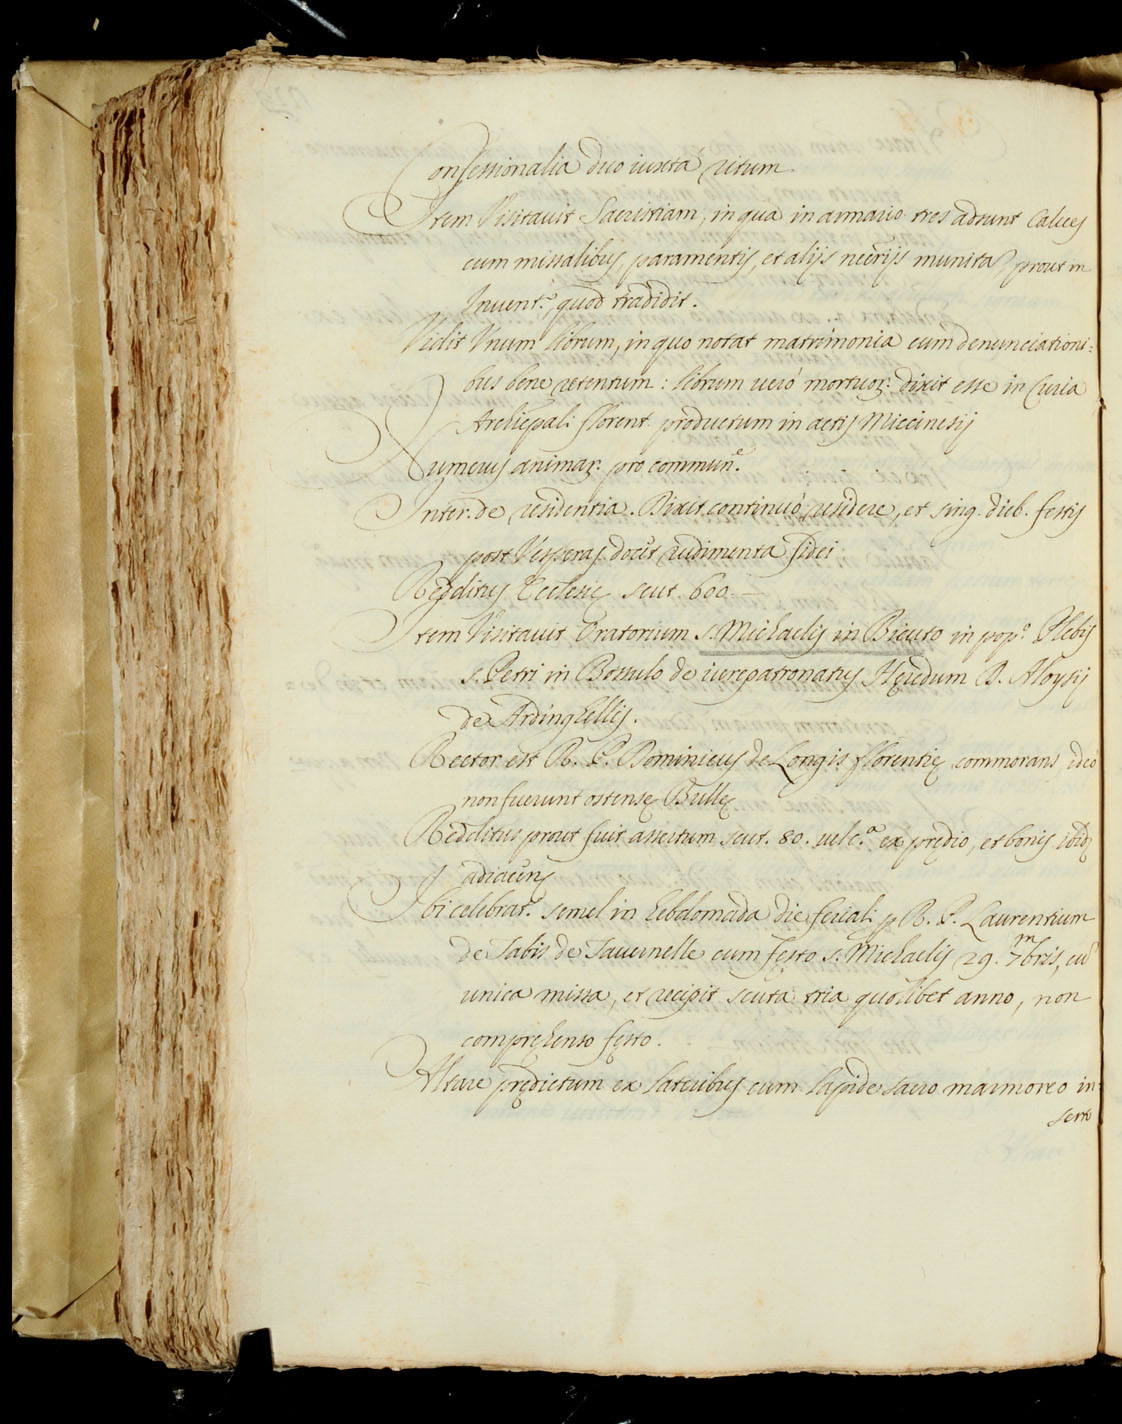 Confessionalia duo iuxta ritum
Item Visitauit Sacristiam, in qua in armario tres adsunt Calices
cum missalibus, paramentis, et alijs necrijs munita, prout in
Invent.º quod tradidit.
Vidit Vnum librum, in quo notat matrimonia cum denunciationi=
bus bene retentum: librum uero mortuor. dixit esse in Curia
Archiepali florent. productum in actis Miccinesij
Numerus animar. pro commun.e
Inter. de residentia. Dixit continuo residere, et sing. dieb. festis
post Vesperas docet rudimenta fidei
Redditus Ecclesię scut. 600.—
Item Visitauit Oratorium s. Michaelis in Bicuto in pop.º Plebis
s. Petri in Bossulo de iurepatronatus Hęredum D. Aloysij
de Ardinghellis.
Rector est R. P. Dominicus de Longis florentię commorans ideo
non fuerunt ostensę Bullę
Redditus prout fuit assertum scut. 80. uel c.ª ex prędio, et bonis ibid.
adiacen.
Ibi celebrat. semel in hebdomada die feriali p R. P. Laurentium
de Tabis de Tauernelle cum festo s. Michaelis 29. 7mbris, cũ
unica missa, et recipit scuta tria quolibet anno, non
compręhenso festo.
Altare prędictum ex lateribus cum lapide sacro marmoreo in
serto